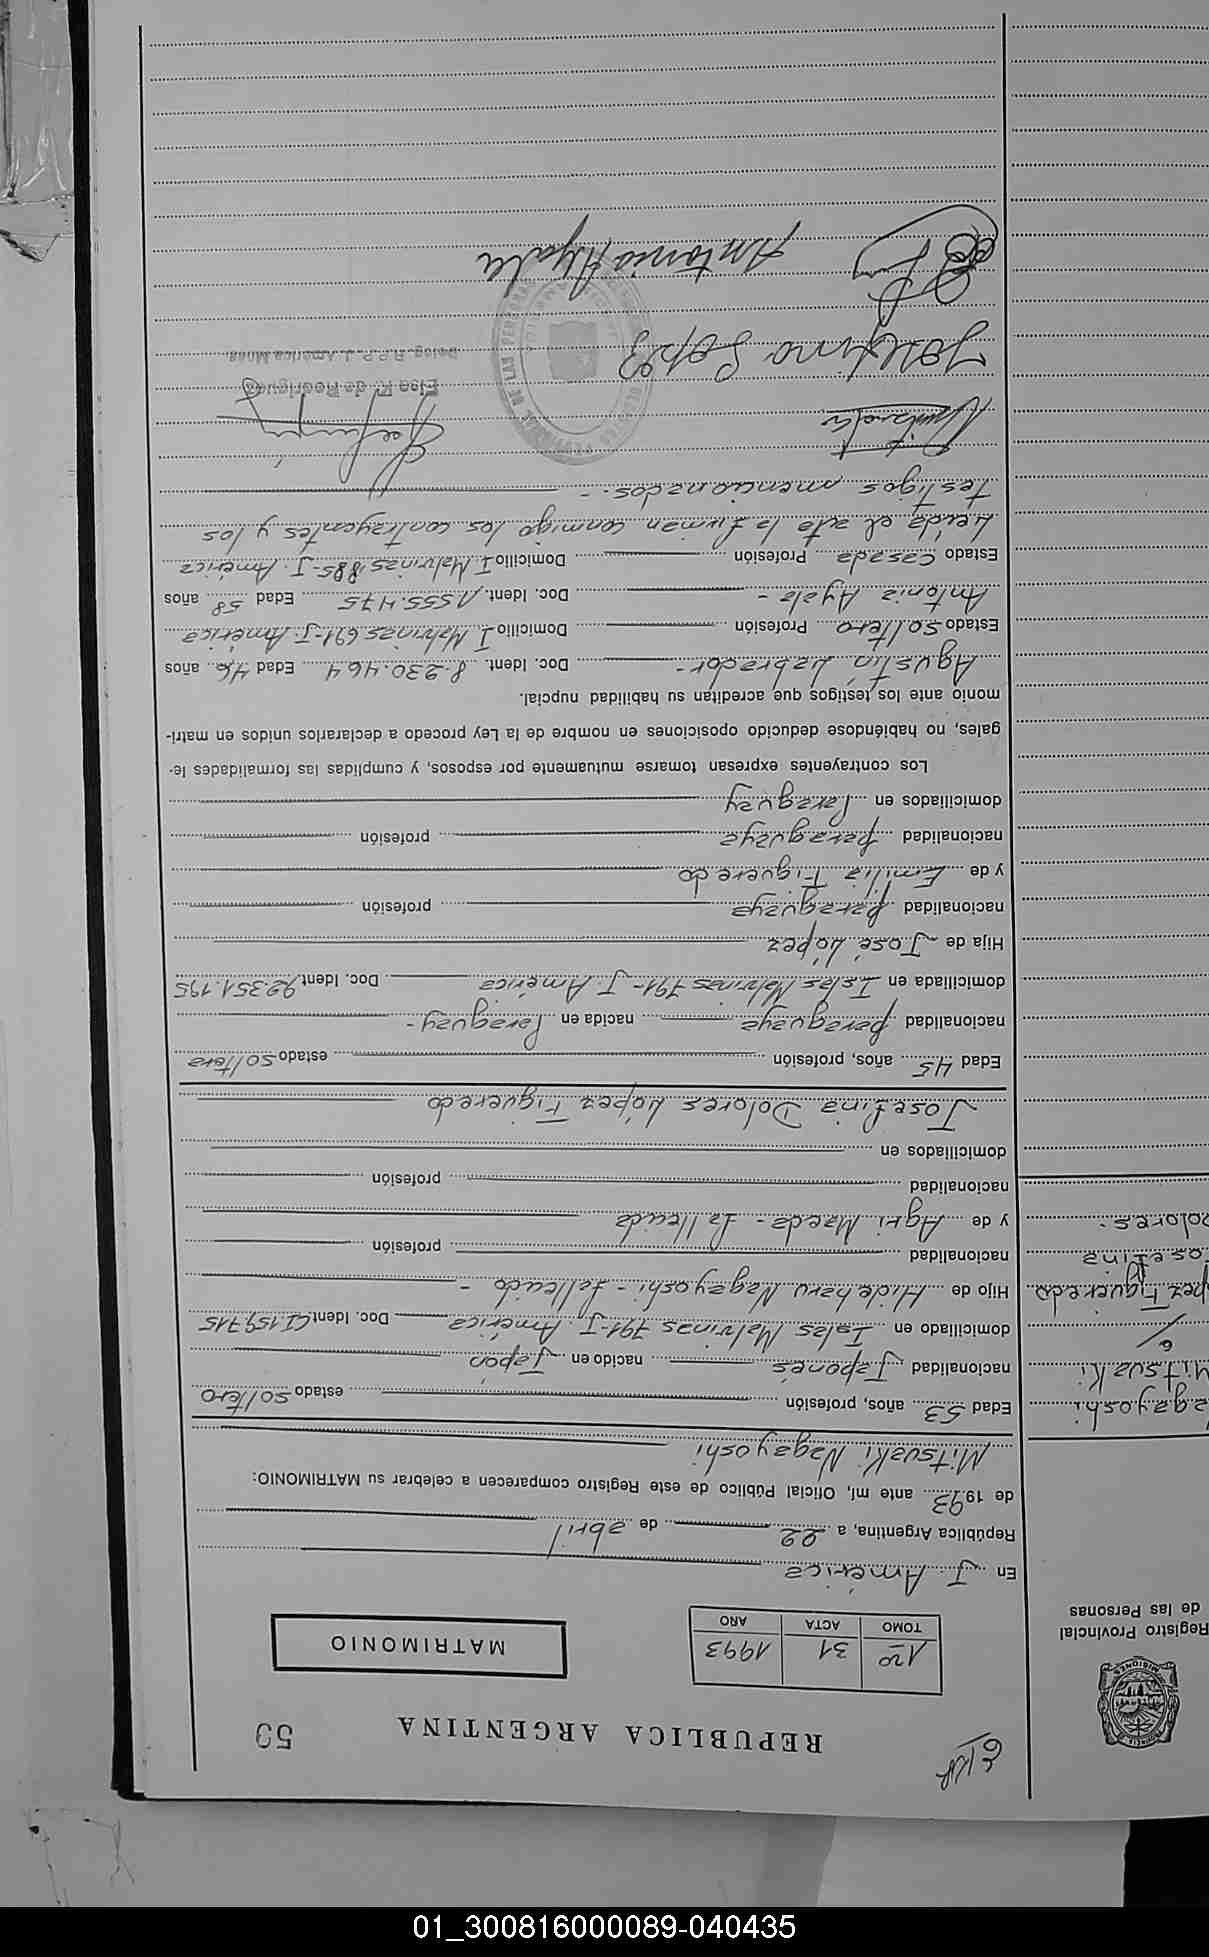 REPUBLICA ARGENTINA
50
Registro Provincial
de las Personas
1ro 31 1993
TOMO ACTA AÑO
MATRIMONIO
En J. América
República Argentina, a 22 de abril
de 1993 ante mí, Oficial Público de este Registro comparecen a celebrar su MATRIMONIO:
Mitsuaki Nagayoshi
Edad 53 años, profesión estado soltero
nacionalidad Japonés nacido en Japón
domiciliado en Islas Malvinas 791-J. América Doc. Ident. CI.159.715
Hijo de Hideharu Nagayoshi - fallecido -
nacionalidad profesión
y de Agri Maeda - fallecida
nacionalidad profesión
domiciliados en
Josefina Dolores López Figueredo
Edad 45 años, profesión estado soltera
nacionalidad paraguaya nacida en Paraguay -
domiciliada en Islas Malvinas 791-J. América Doc. Ident. 92.351.195
Hija de José López
nacionalidad paraguaya profesión
y de Emilia Figueredo
nacionalidad paraguaya profesión
domiciliados en Paraguay
Los contrayentes expresan tomarse mutuamente por esposos, y cumplidas las formalidades le-
gales, no habiéndose deducido oposiciones en nombre de la Ley procedo a declararlos unidos en matri-
monio ante los testigos que acreditan su habilidad nupcial.
Agustín Labrador - Doc. Ident. 8.230.464 Edad 46 años
Estado soltero Profesión Domicilio I. Malvinas 691-J. América
Antonia Ayala - Doc. Ident. 1.555.475 Edad 58 años
Estado casada Profesión Domicilio I. Malvinas 885-J. América
Leída el acta la firman conmigo los contrayentes y los
testigos mencionados. -
Elsa R. de Rodríguez
Deleg. R.P.P. J. América Mnes.
Josefina López
Antonia Ayala
Nagayoshi
Mitsuaki
c/
López Figueredo
Josefina
Dolores.
01_300816000089-040435